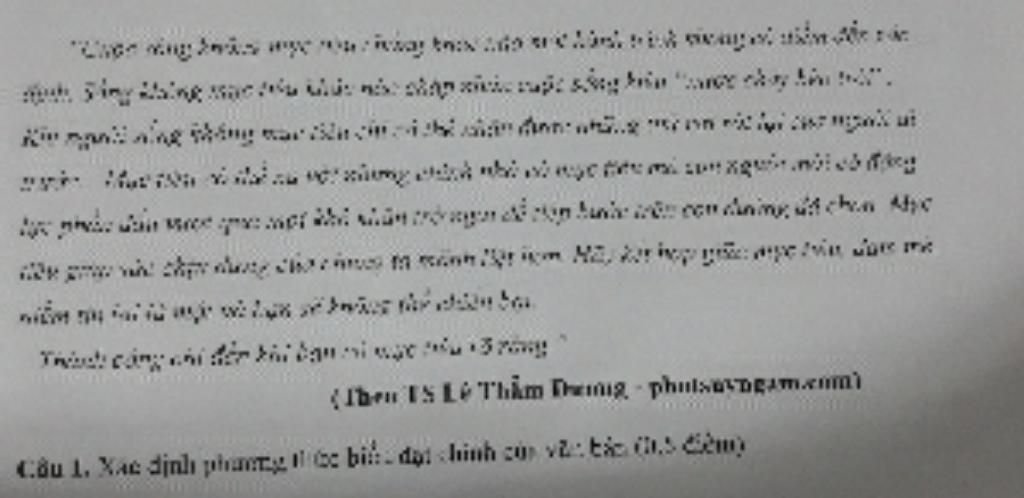 "Cuộc sống không mục tiêu chẳng khác nào một hành trình không có điểm đến xác
định. Sống không mục tiêu khác nào chấp nhận cuộc sống kiểu "nước chảy bèo trôi".
Khi người sống không mục tiêu chỉ có thể nhận được những gì rơi rớt lại người đi
trước. Mục tiêu có thể xa vời nhưng chính nhờ có mục tiêu mà con người mới có động
lực phấn đấu vượt qua mọi khó khăn trở ngại để tiếp bước trên con đường đã chọn. Mục
tiêu giúp của chúng ta mãnh liệt hơn. Hãy kết hợp giữa mục tiêu, đam mê
niềm tin lại là một và bạn sẽ không thể
Thành công chỉ đến khi bạn có mục tiêu rõ ràng "
(Theo TS Lê Thẩm Dương - phutsuyngam.com)
Câu 1. Xác định phương thức biểu đạt chính của văn bản (0,5 điểm)